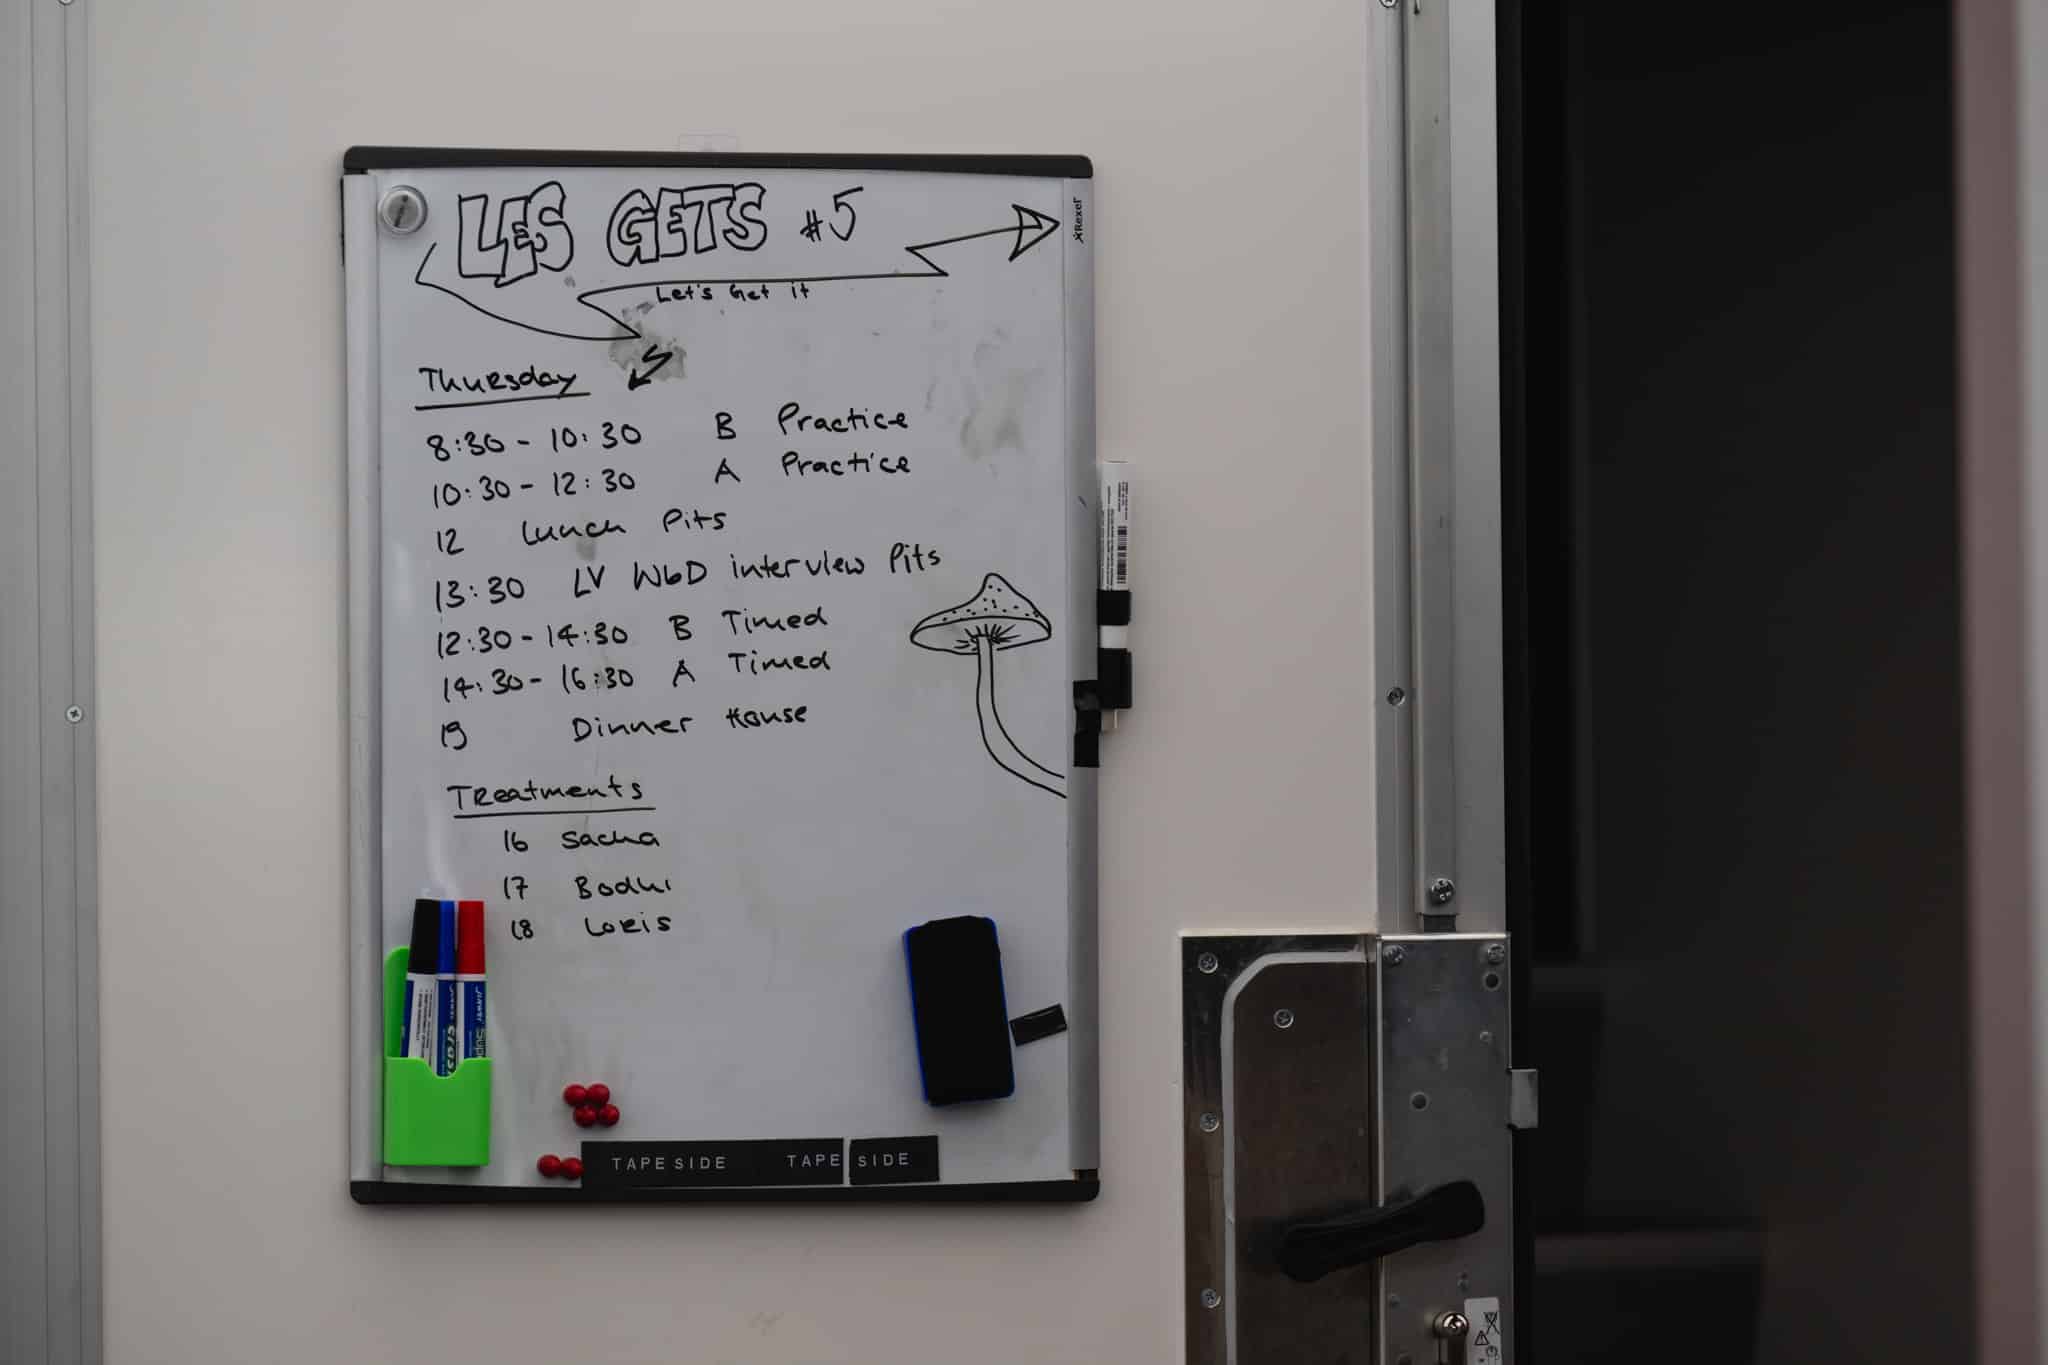 LES GETS #5
Rexel
Let's Get it
Thursday
8:30 - 10:30 B Practice
10:30 - 12:30 A Practice
12 Lunch Pits
13:30 LV WbD interview Pits
12:30 - 14:30 B Timed
14:30 - 16:30 A Timed
19 Dinner House
Treatments
16 Sacha
17 Bodhi
18 Loris
TAPE SIDE TAPE SIDE